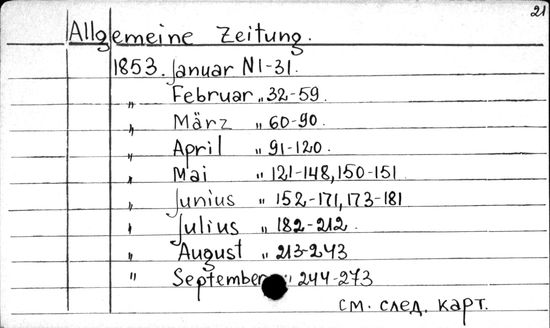 21
Allgemeine Zeitung.
1853. Januar N1-31.
„ Februar „ 32-59.
„ März „ 60-90.
„ April „ 91-120.
„ Mai „ 121-148, 150-151
„ Junius „ 152-171, 173-181
„ Julius „ 182-212.
„ August „ 213-243
„ September „ 244-273
см. след. карт.